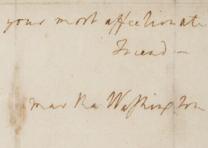 your most affectionate
Friend —
Martha Washington